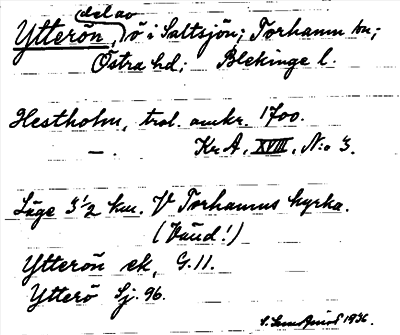 del av
Ytterön, ö i Saltsjön; Torhamn sn;
Östra hd; Blekinge l.
Hestholm, trol. omkr. 1700.
—. Kr. A, XVIII, N:o 3.
Läge 3 1/2 km. V Torhamns kyrka.
(Vänd!)
Ytterön ek, G.11.
Ytterö Sj. 96.
1936.